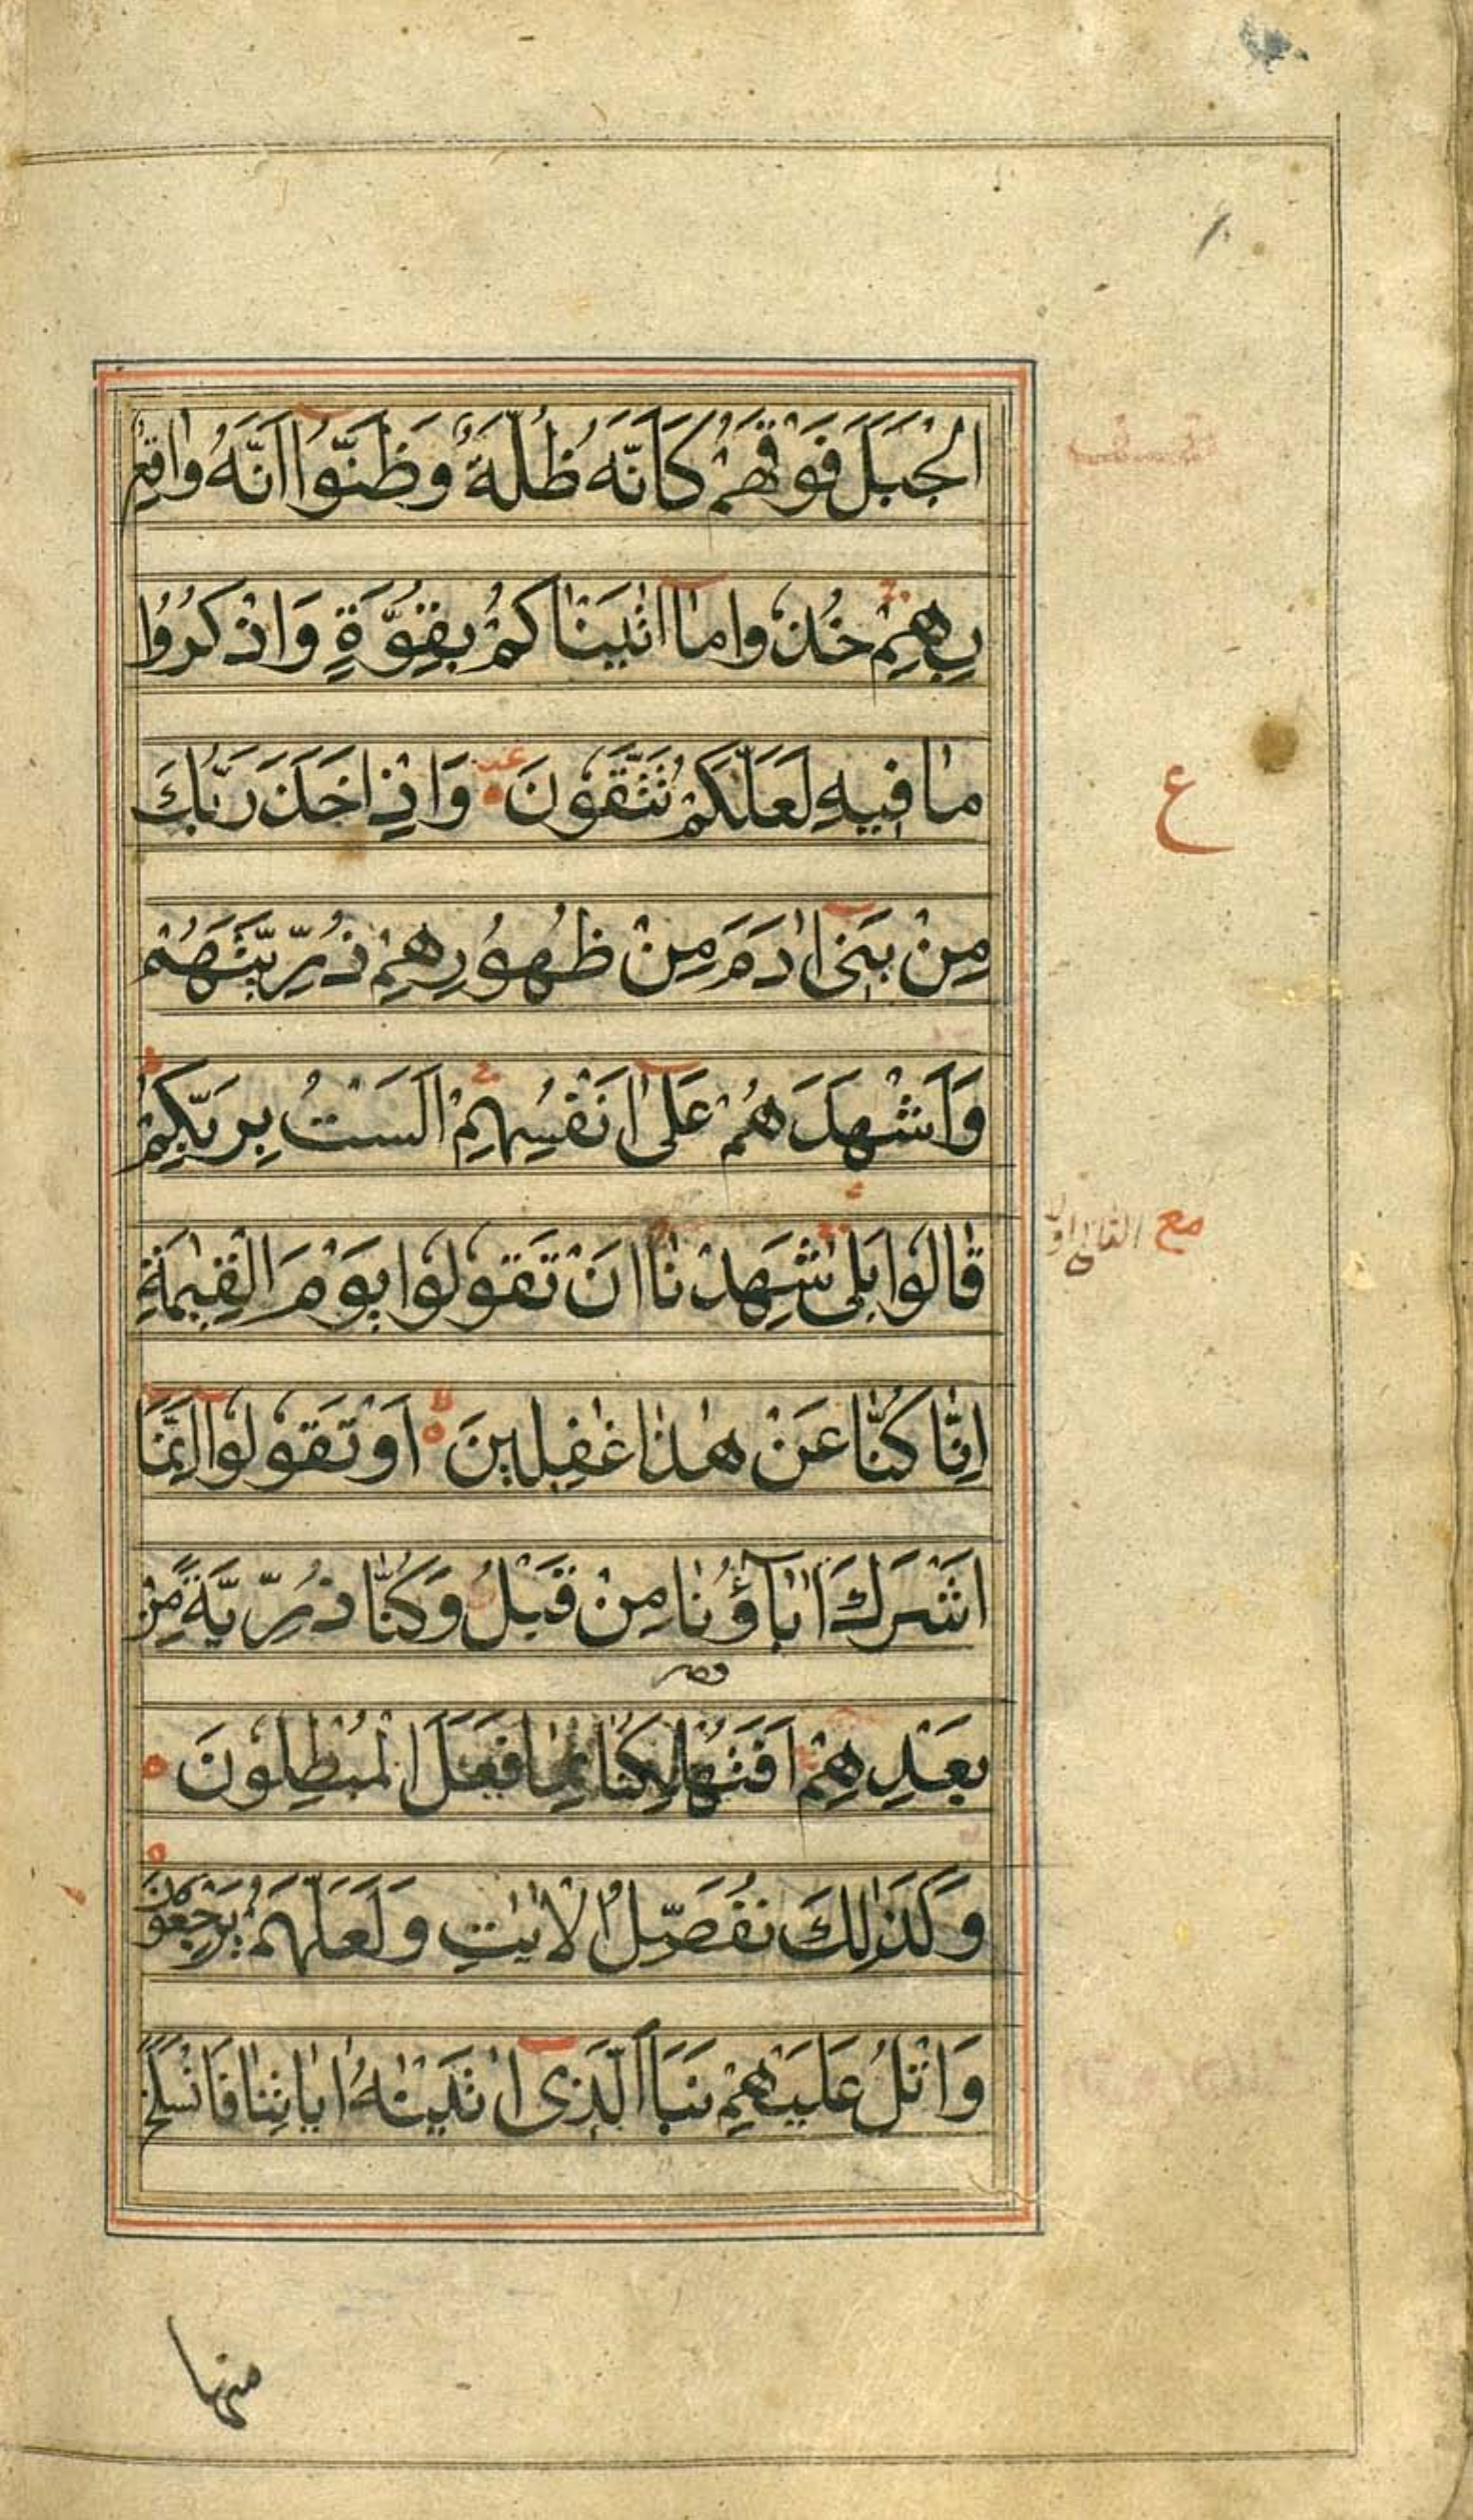 الْجَبَلَ فَوْقَهُمْ كَاَنَّهٗ ظُلَّةٌ وَظَنُّوْا اَنَّهٗ وَاقِعٌ
بِهِمْ خُذُوا مٰا اٰتَيْنٰاكُمْ بِقُوَّةٍ وَاذْكُرُوْا
مٰا فِيهِ لَعَلَّكُمْ تَتَّقُوْنَ وَاِذْ اَخَذَ رَبُّكَ
ع
مِنْ بَنِي اٰدَمَ مِنْ ظُهُوْرِهِمْ ذُرِّيَّتَهُمْ
وَاَشْهَدَهُمْ عَلٰى اَنْفُسِهِمْ اَلَسْتُ بِرَبِّكُمْ
قٰالُوْا بَلٰى شَهِدْنٰا اَنْ تَقُوْلُوْا يَوْمَ الْقِيٰمَةِ
مع
اِنّٰا كُنّٰا عَنْ هٰذٰا غٰفِلِينَ اَوْ تَقُوْلُوْا اِنَّمَا
اَشْرَكَ اٰبٰاؤُنٰا مِنْ قَبْلُ وَكُنّٰا ذُرِّيَّةً مِنْ
بَعْدِهِمْ اَفَتُهْلِكُنٰا بِمٰا فَعَلَ الْمُبْطِلُوْنَ
وَكَذٰلِكَ نُفَصِّلُ الْاٰيٰتِ وَلَعَلَّهُمْ يَرْجِعُوْنَ
وَاتْلُ عَلَيْهِمْ نَبَاَ الَّذِى اٰتَيْنٰهُ اٰيٰاتِنٰا فَانْسَلَخَ
منها